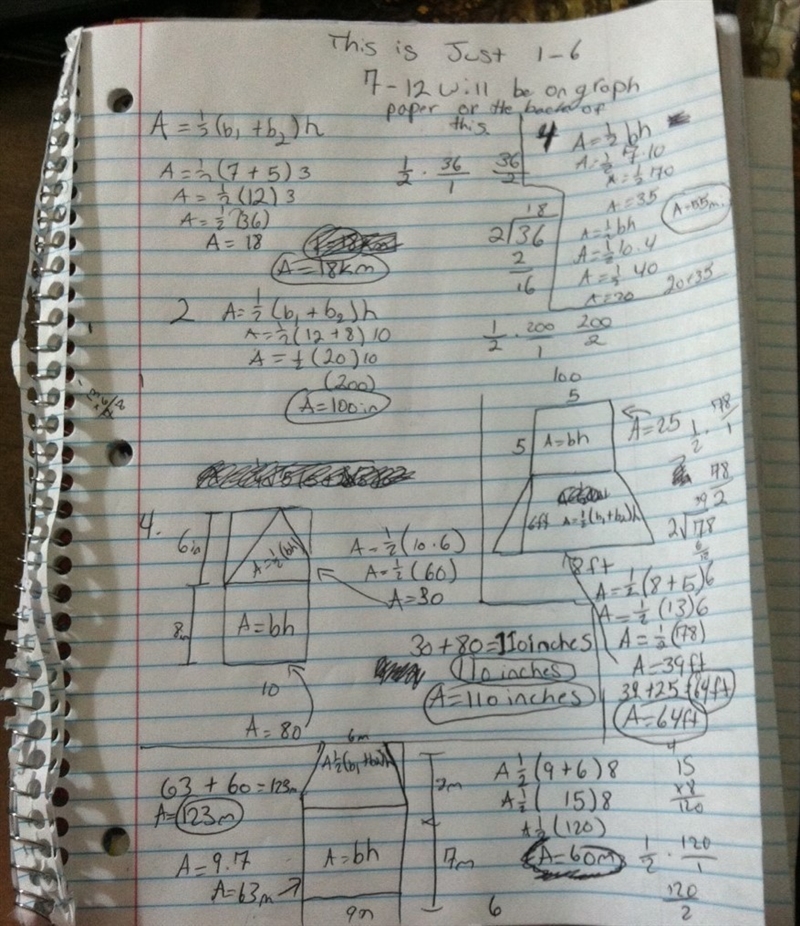 This is Just 1-6
7-12 will be on graph
paper or the back of
this.
A = ½(b₁ + b₂)h
A = ½(7 + 5)3
A = ½(12)3
A = ½(36)
A = 18
A = 18km
½ · 36/1
36/2
18
2√36
2
16
4
A = ½bh
A = ½ 7·10
A = ½ 70
A = 35
A = 55m
A = ½bh
A = ½ 10·4
A = ½ 40
A = 20
20+35
2
A = ½(b₁ + b₂)h
A = ½(12 + 8)10
A = ½(20)10
(200)
A = 100in
½ · 200/1
200/2
100
5
5
A = bh
A = 25
½ · 78/1
78/2
39
2√78
6ft
A = ½(b₁ + b₂)h
8ft
A = ½(8 + 5)6
A = ½(13)6
A = ½(78)
A = 39ft
39 + 25 = 64ft
A = 64ft
4.
6in
A = ½(bh)
A = ½(10·6)
A = ½(60)
A = 30
8in
A = bh
10
A = 80
30 + 80 = 110inches
110 inches
A = 110 inches
6m
A½(b₁ + b₂)h
63 + 60 = 123m
A = 123m
A = 9.7
A = 63m
A = bh
7m
9m
A ½(9 + 6)8
A ½( 15)8
A ½(120)
A = 60m
4
15
x8
120
½ · 120/1
120/2
6